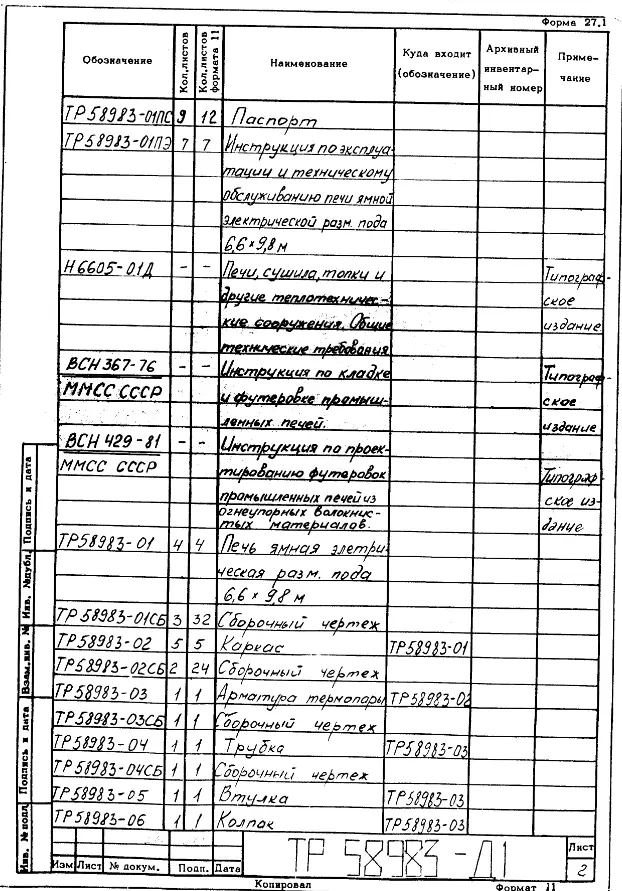 Форма 27.1
Обозначение Кол.листов Кол.листов формата 11 Наименование Куда входит (обозначение) Архивный инвентарный номер Примечание
ТР58983-01ПС 9 12 Паспорт
ТР58983-01ПЭ 7 7 Инструкция по эксплуа-
тации и техническому
обслуживанию печи ямной
электрической разм. пода
6,6×9,8 м
Н6605-01Д - - Печи, сушила, топки и Типограф-
другие теплотехничес- ское
кие сооружения. Общие издание
технические требования
ВСН 367-76 - - Инструкция по кладке Типограф-
ММСС СССР и футеровке промыш- ское
ленных печей. издание
ВСН 429-81 - - Инструкция по проек-
ММСС СССР тированию футеровок Типограф-
промышленных печей из ское из-
огнеупорных волокнис- дание
тых материалов.
ТР58983-01 4 4 Печь ямная элетри-
ческая разм. пода
6,6 × 9,8 м
ТР58983-01СБ 3 32 Сборочный чертеж
ТР58983-02 5 5 Каркас ТР58983-01
ТР58983-02СБ 2 24 Сборочный чертеж
ТР58983-03 1 1 Арматура термопары ТР58983-02
ТР58983-03СБ 1 1 Сборочный чертеж
ТР58983-04 1 1 Трубка ТР58983-03
ТР58983-04СБ 1 1 Сборочный чертеж
ТР58983-05 1 1 Втулка ТР58983-03
ТР58983-06 1 1 Колпак ТР58983-03
Подпись и дата
Инв. №дубл.
Взам.инв. №
Подпись и дата
Инв. № подл.
Изм Лист № докум. Подп. Дата
ТР 58983-Д1
Лист
2
Копировал Формат 11